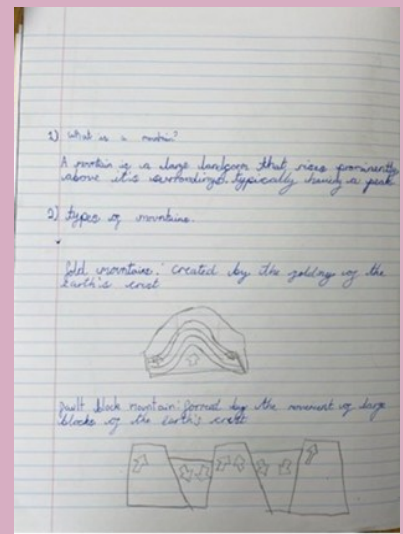 1) What is a montain?
A montain is a large landform that rises prominently
above it's surrondings. typically having a peak
2) types of mountains.
fold mountains: created by the foldings of the
Earth's crust
fault block mountain: formed by the movement of large
blocks of the Earth's crust